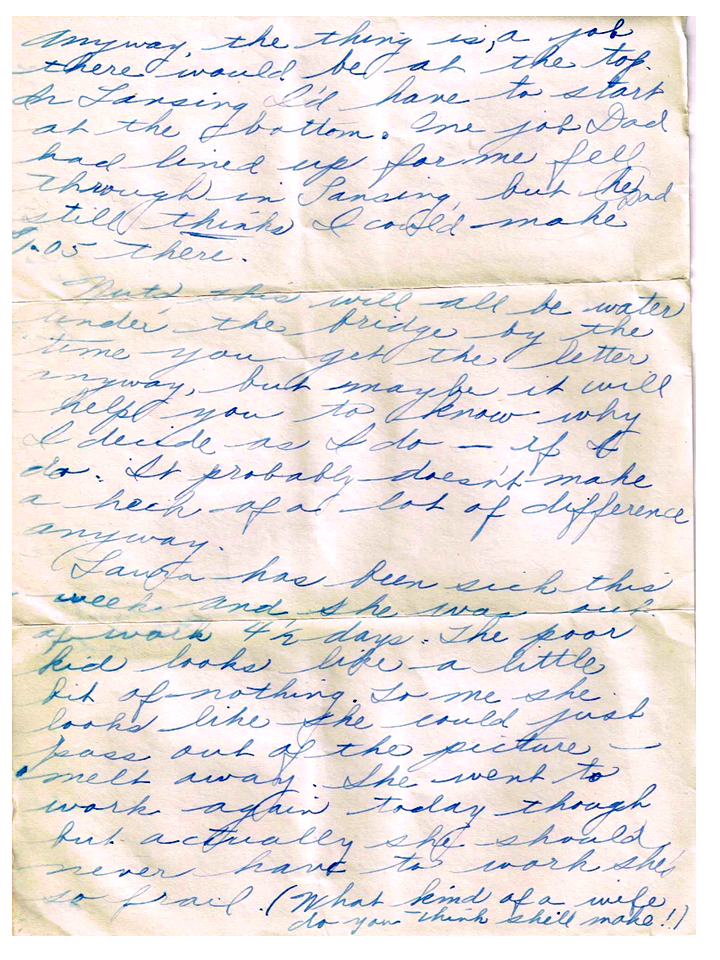 Anyway, the thing is, a job
there would be at the top.
In Lansing I'd have to start
at the bottom. One job Dad
had lined up for me fell
through in Lansing, but he Dad
still thinks I could make
1.05 there.
Nuts, this will all be water
under the bridge by the
time you get the letter
anyway, but maybe it will
help you to know why
I decide as I do — if I
do. It probably doesn't make
a heck of a lot of difference
anyway.
Laura has been sick this
week and she was out
of work 4½ days. The poor
kid looks like a little
bit of nothing. To me she
looks like she could just
pass out of the picture —
melt away. She went to
work again today though
but actually she should
never have to work she's
so frail. (What kind of a wife
do you think she'll make!)